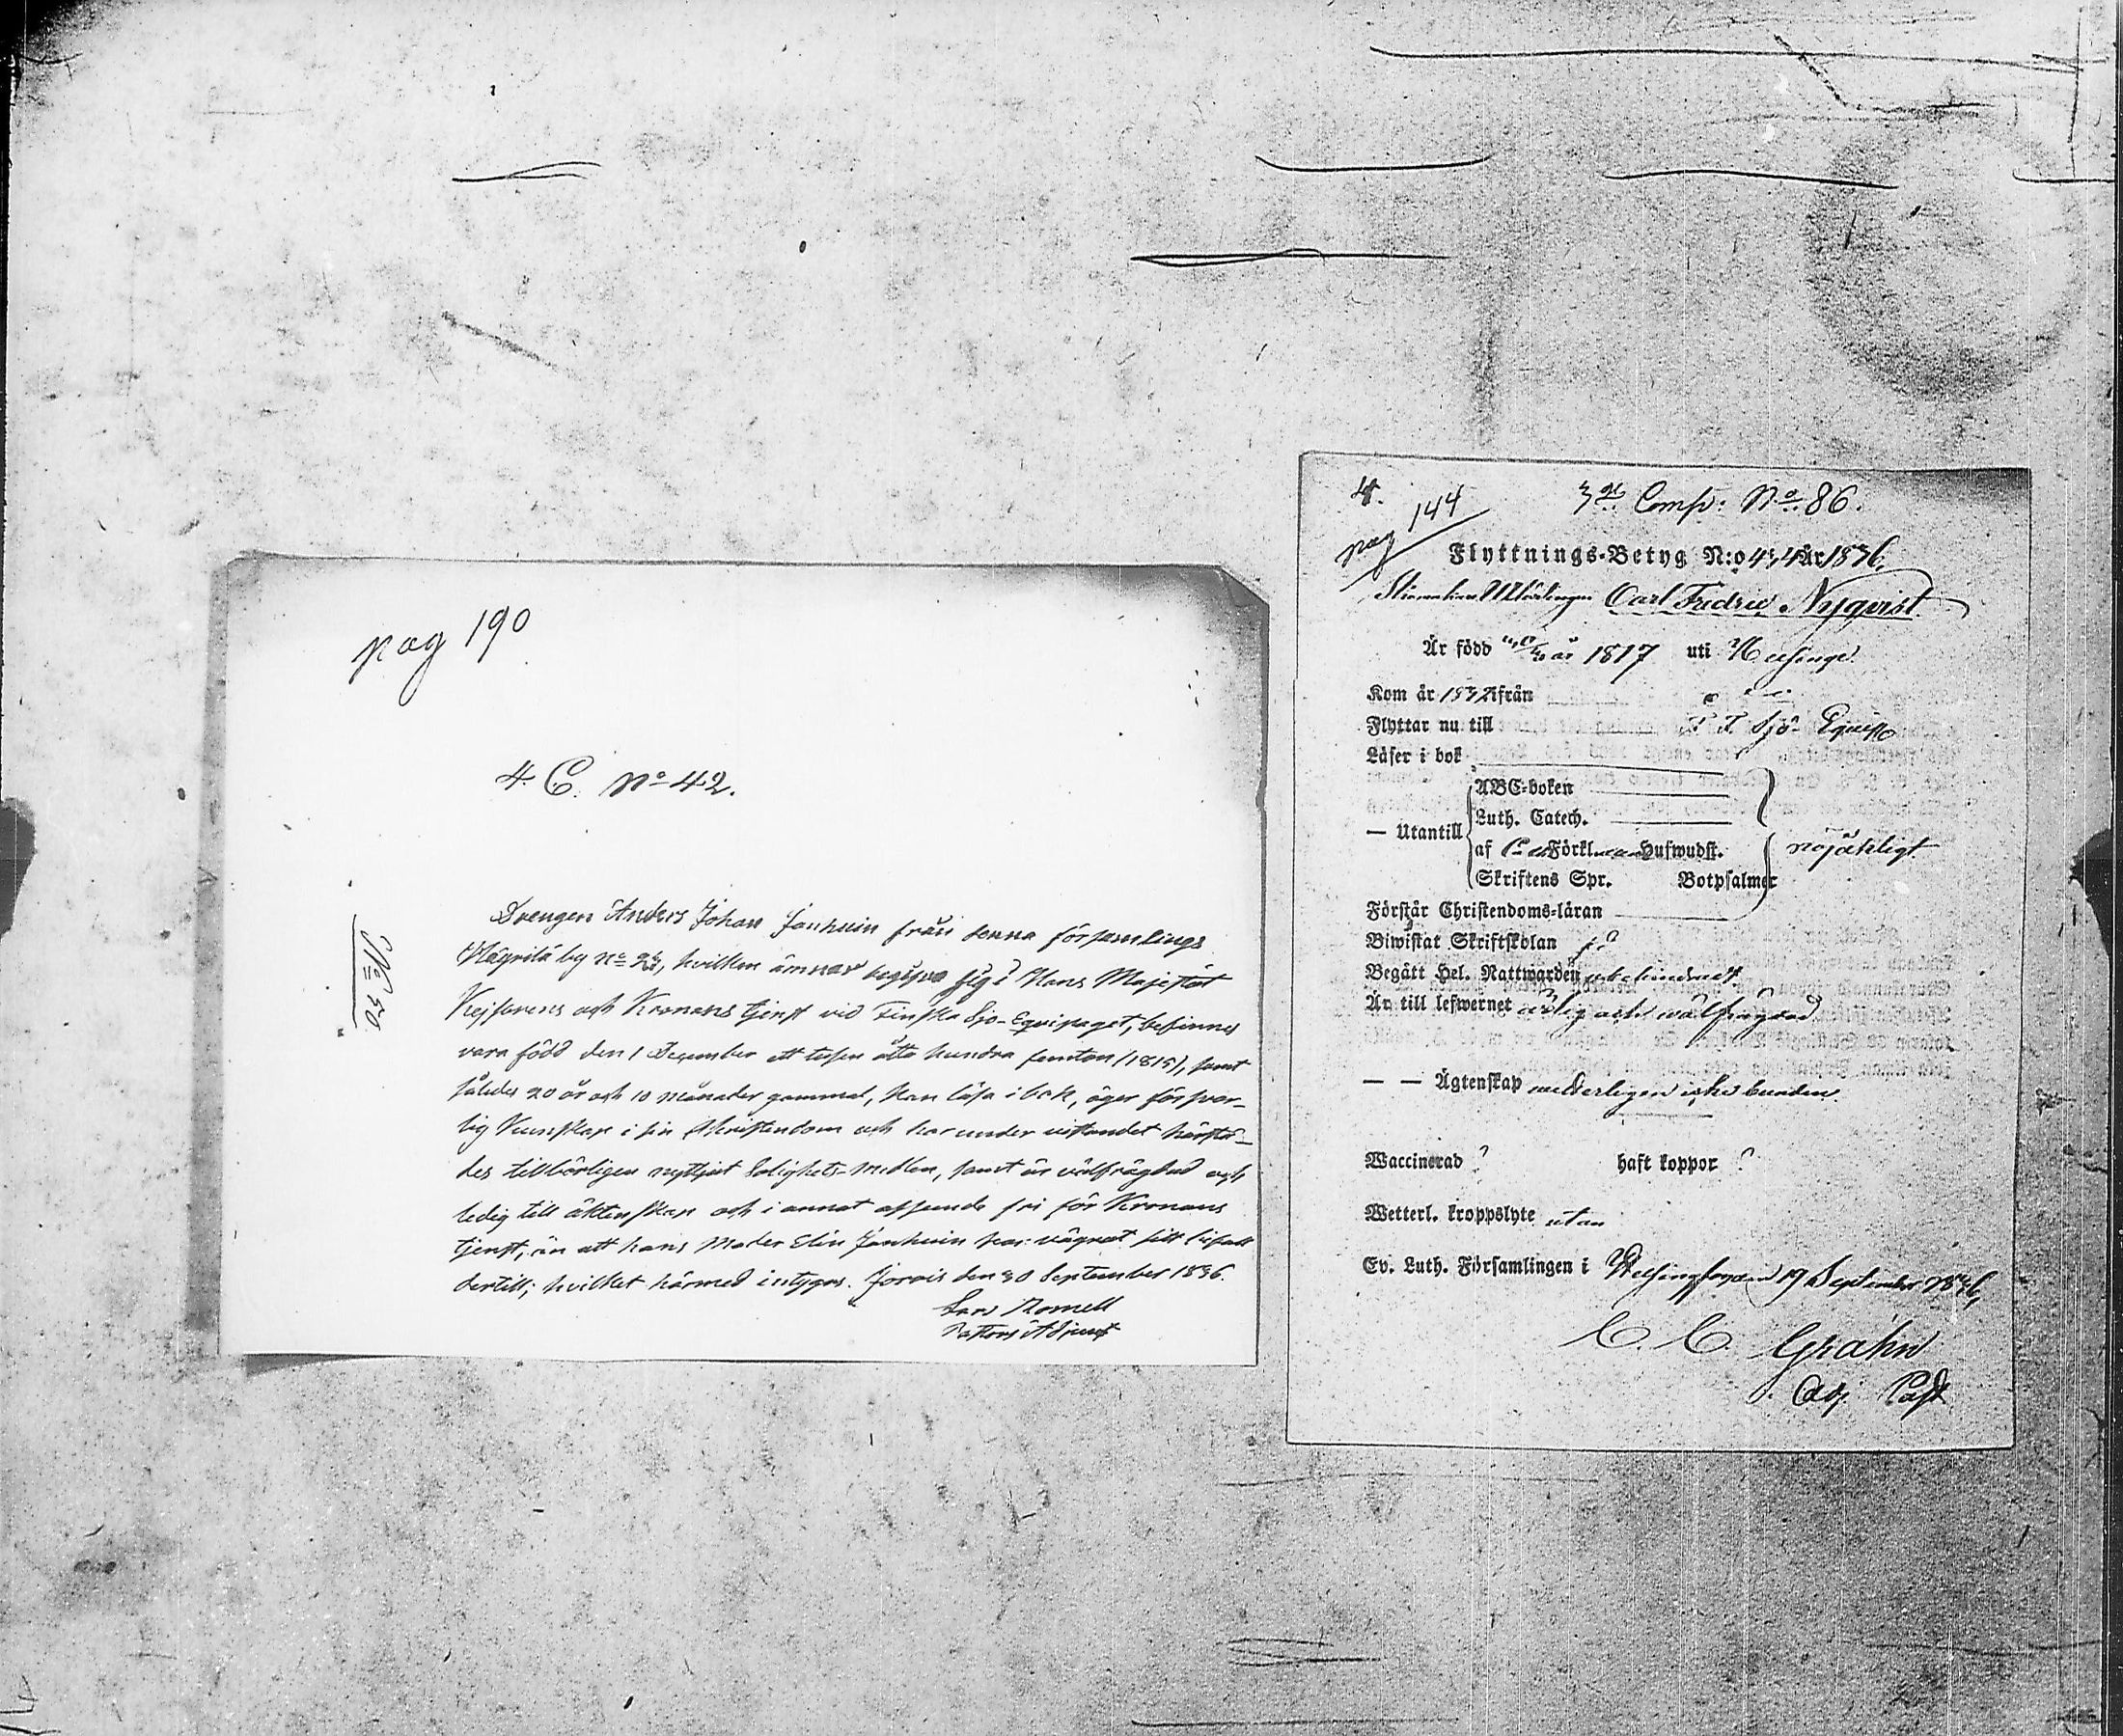 pag 190
4. C. No 42.
No 50
Drengen Anders Johan Janhuin från denna församlings
by No, hvilken ämnar begifva sig i Hans Majestät
Kejsarens och Kronans tjenst vid Finska Sjö-Equipaget, befinnes
vara född den 1 December ett tusen åtta hundra femton (1815), samt
således 20 år och 10 månader gammal, kan läsa i bok, äger försvar-
lig Kunskap i sin Christendom och har under vistandet härstä-
des tillbörligen nyttjat Salighets-medlen, samt är välfrägdad och
ledig till äktenskap och i annat afseende fri för Kronans
tjenst, än att hans Moder Elin Janhuin har vägrat sitt bifall
dertill; hvilket härmed intygas. Jorois den 30 September 1836.
Lars Romell
Pastors Adjunct
4.
pag 144
3de Comp: No. 86.
Flyttnings-Betyg N:o 434 år 1836.
Carl Fredric Nyqvist
Är född år 1817 uti Helsinge.
Kom år 1832 ifrån
Flyttar nu till F. Sjö-Equip
Läser i bok
— Utantill
ABC-boken
Luth. Catech.
af Förkl. Hufwudst.
Skriftens Spr. Botpsalmer
nöjaktligt
Förstår Christendoms-läran
Biwistat Skriftskolan ja
Begått Hel. Nattwarden obehindradt
Är till lefwernet ärlig och wälfrägdad
— — Ägtenskap wetterligen icke bunden.
Waccinerad ? haft koppor ?
Wetterl. kroppslyte utan
Ev. Luth. Församlingen i Helsingfors den 19 September 1836.
C. C. Grahn
Adj. Past